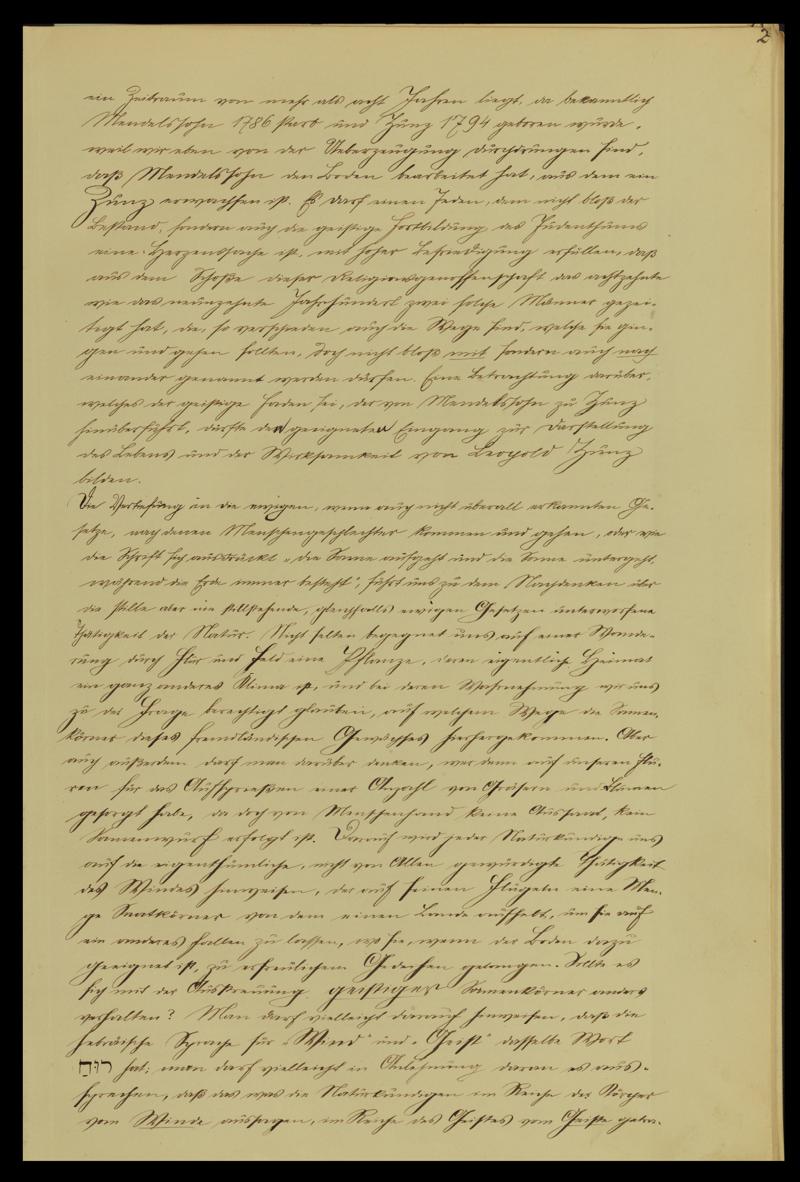 2
ein Zeitraum von mehr als acht Jahren liegt, da bekanntlich
Mendelssohn 1786 starb und Zunz 1794 geboren wurde,
weil wir eben von der Ueberzeugung durchdrungen sind,
daß Mendelssohn den Boden bearbeitet hat, aus dem ein
Zunz erwachsen ist. Es darf einen Jeden, dem nicht bloß der
Bestand, sondern auch die geistige Fortbildung des Judenthums
eine Herzenssache ist, mit hoher Befriedigung erfüllen, daß
aus dem Schoße dieser Religionsgenossenschaft das achtzehnte
wie das neunzehnte Jahrhundert zwei solche Männer gezei-
tigt hat, die, so verschieden auch die Wege sind, welche sie gin-
gen und gehen sollten, doch nicht bloß mit sondern auch nach
einander genannt werden dürfen. Eine Betrachtung darüber,
welches der geistige Faden sei, der von Mendelssohn zu Zunz
hinüberführt, dürfte den geeigneten Eingang zur Darstellung
des Lebens und der Wirksamkeit von Leopold Zunz
bilden.
Die Vertiefung in die ewigen, wenn auch nicht überall erkannten Ge-
setze, nach denen Menschengeschlechter kommen und gehen, oder wie
die Schrift sich ausdrückt „die Sonne aufgeht und die Sonne untergeht,
während die Erde immer besteht", führt uns zu dem Nachdenken über
die stille aber nie stillstehende, gleichfalls ewigen Gesetzen unterworfene
Thätigkeit der Natur. Nicht selten begegnet uns auf einer Wande-
rung durch Flur und Feld eine Pflanze, deren eigentliche Heimat
ein ganz anderes Klima ist, und bei deren Wahrnehmung wir uns
zu der Frage berechtigt glauben, auf welchem Wege die Samen-
körner dieses fremdländischen Gewächses hierhergekommen. Aber
auch außerdem darf man darüber denken, wer denn auf unseren Flu-
ren für das Aufsprießen einer Anzahl von Gräsern und Blumen
gesorgt habe, da doch von Menschenhand keine Aussaat, kein
Samenwurf erfolgt ist. Darauf wird jeder Naturkundige uns
auf die eigenthümliche, nicht von Allen gewürdigte Thätigkeit
des Windes hinweisen, der auf seinen Flügeln eine Men-
ge Saatkörner von dem einen Lande aufhebt, um sie auf
ein anderes fallen zu lassen, wo sie, wenn der Boden dazu
geeignet ist, zu erfreulichem Gedeihen gelangen. Sollte es
sich mit der Ausstreuung geistiger Samenkörner anders
verhalten? Man darf vielleicht darauf hinweisen, daß die
hebräische Sprache für „Wind" und „Geist" dasselbe Wort
רוּחַ hat; man darf vielleicht in Anlehnung daran es aus-
sprechen, daß das was die Naturkundigen im Reiche der Körper
vom Winde aussagen, im Reiche des Geistes vom Geiste gelte.